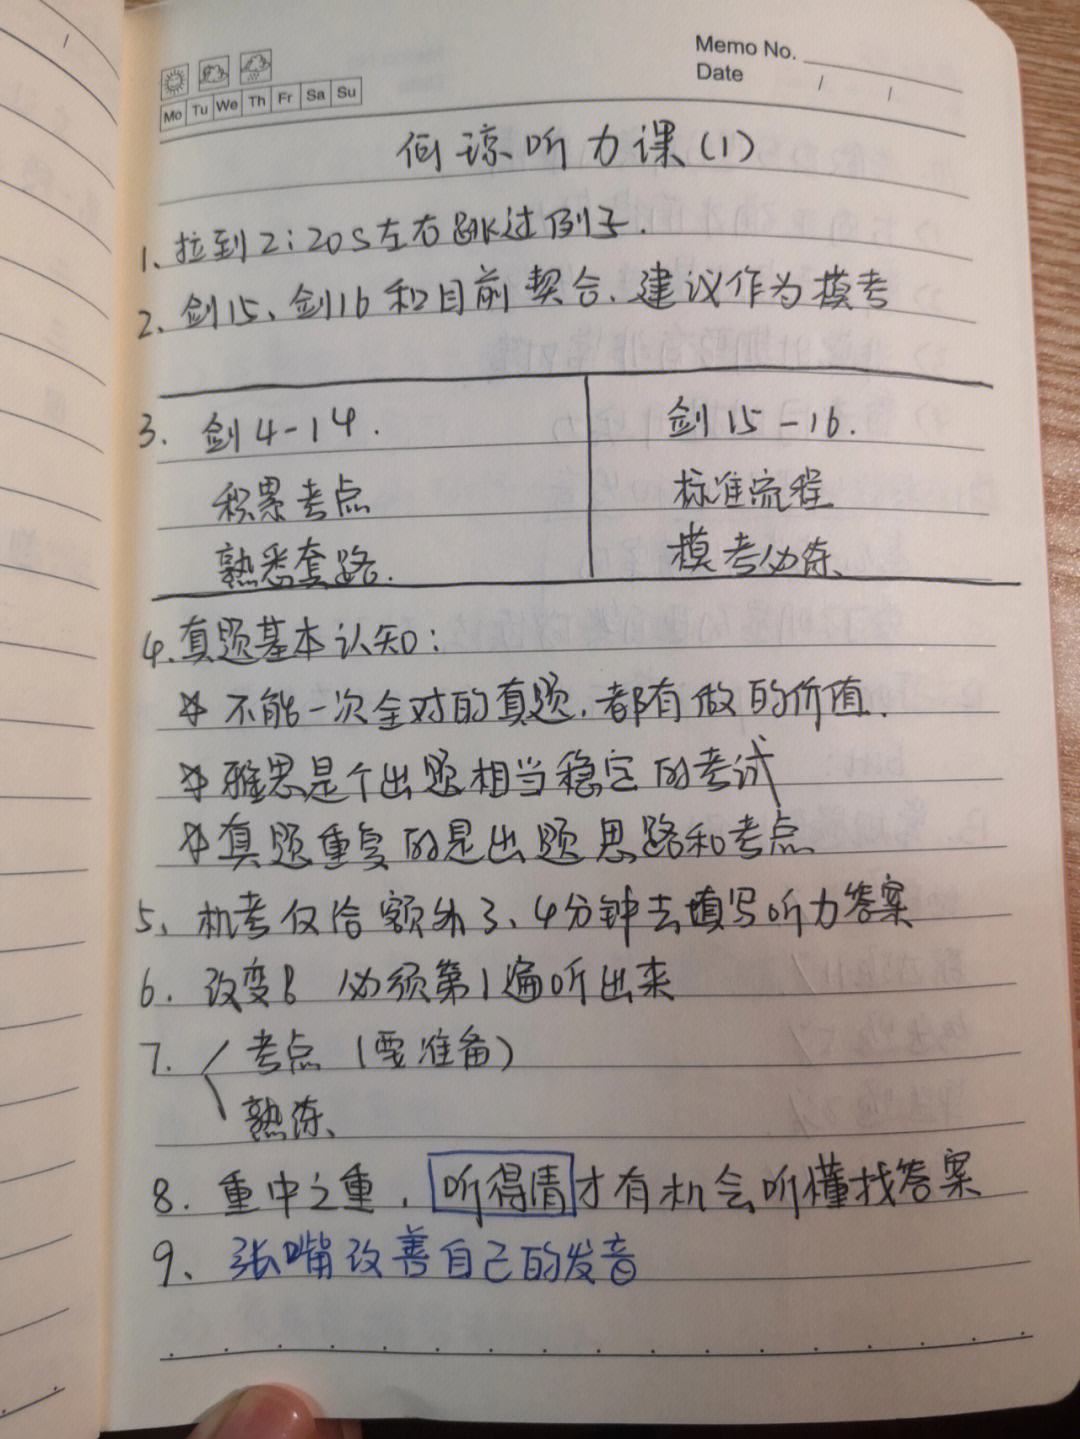 Memo No.
Date / /
Mo Tu We Th Fr Sa Su
何琼听力课(1)
1、拉到2:20s左右跳过例子.
2、剑15、剑16和目前契合、建议作为模考
3. 剑4-14. 剑15-16.
积累考点 标准流程
熟悉套路. 模考必练
4.真题基本认知:
不能一次全对的真题,都有做的价值.
雅思是个出题相当稳定的考试
真题重复的是出题思路和考点
5、机考仅给额外3、4分钟去填写听力答案
6. 改变 必须第1遍听出来
7. 考点(要准备)
熟练
8. 重中之重,听得清才有机会听懂找答案
9、张嘴改善自己的发音